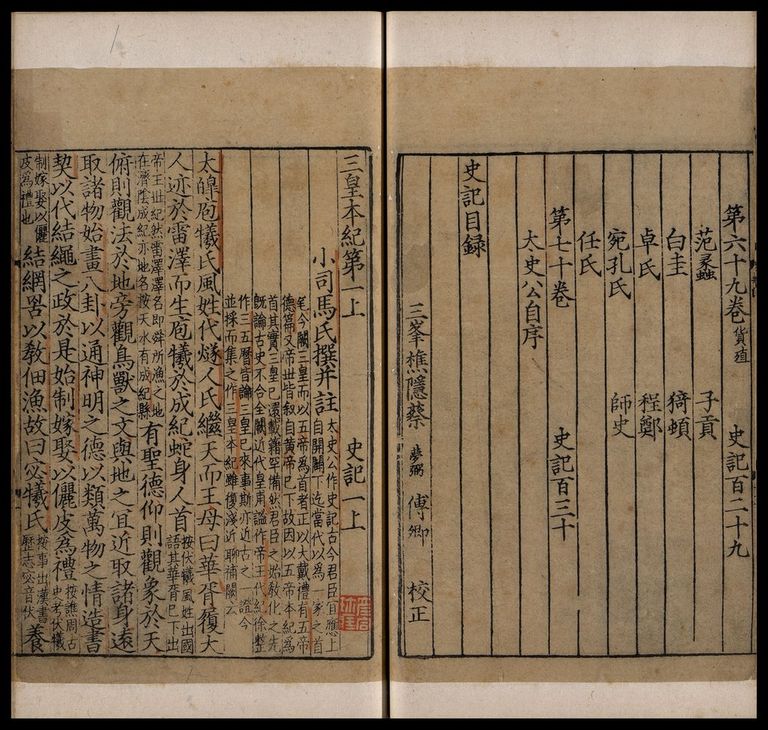 第六十九卷 貨殖 史記百二十九
范蠡 子貢
白圭 猗頓
卓氏 程鄭
宛孔氏 師史
任氏
第七十卷 史記百三十
太史公自序
史記目録
三峯樵隱蔡 夢弼 傅卿 校正
三皇本紀第一上 史記一上
小司馬氏撰并註 太史公作史記古今君臣宜應上
自開闢下迄當代以為一家之首
尾今闕三皇而以五帝為首者正以大戴禮有五帝
德篇又帝世皆叙自黄帝已下故因以五帝本紀為
首其實三皇已還載籍罕備然君臣之始教化之先
既論古史不合全闕近代皇甫謐作帝王代紀徐整
作三五曆皆論三皇已來事斯亦近古之一證今
並採而集之作三皇本紀雖復淺近聊補闕云
太皥庖犧氏風姓代燧人氏繼天而王母曰華胥履大
人迹於雷澤而生庖犧於成紀蛇身人首 按伏犧風姓出國
語其華胥已下出
帝王世紀然雷澤澤名即舜所漁之地
在濟陰成紀亦地名按天水有成紀縣 有聖德仰則觀象於天
俯則觀法於地旁觀鳥獸之文與地之宜近取諸身遠
取諸物始畫八卦以通神明之德以類萬物之情造書
契以代結繩之政於是始制嫁娶以儷皮為禮 按譙周古
史考伏犧
制嫁娶以儷
皮為禮也 結網罟以教佃漁故曰宓犧氏 按事出漢書
歷志宓音伏 養